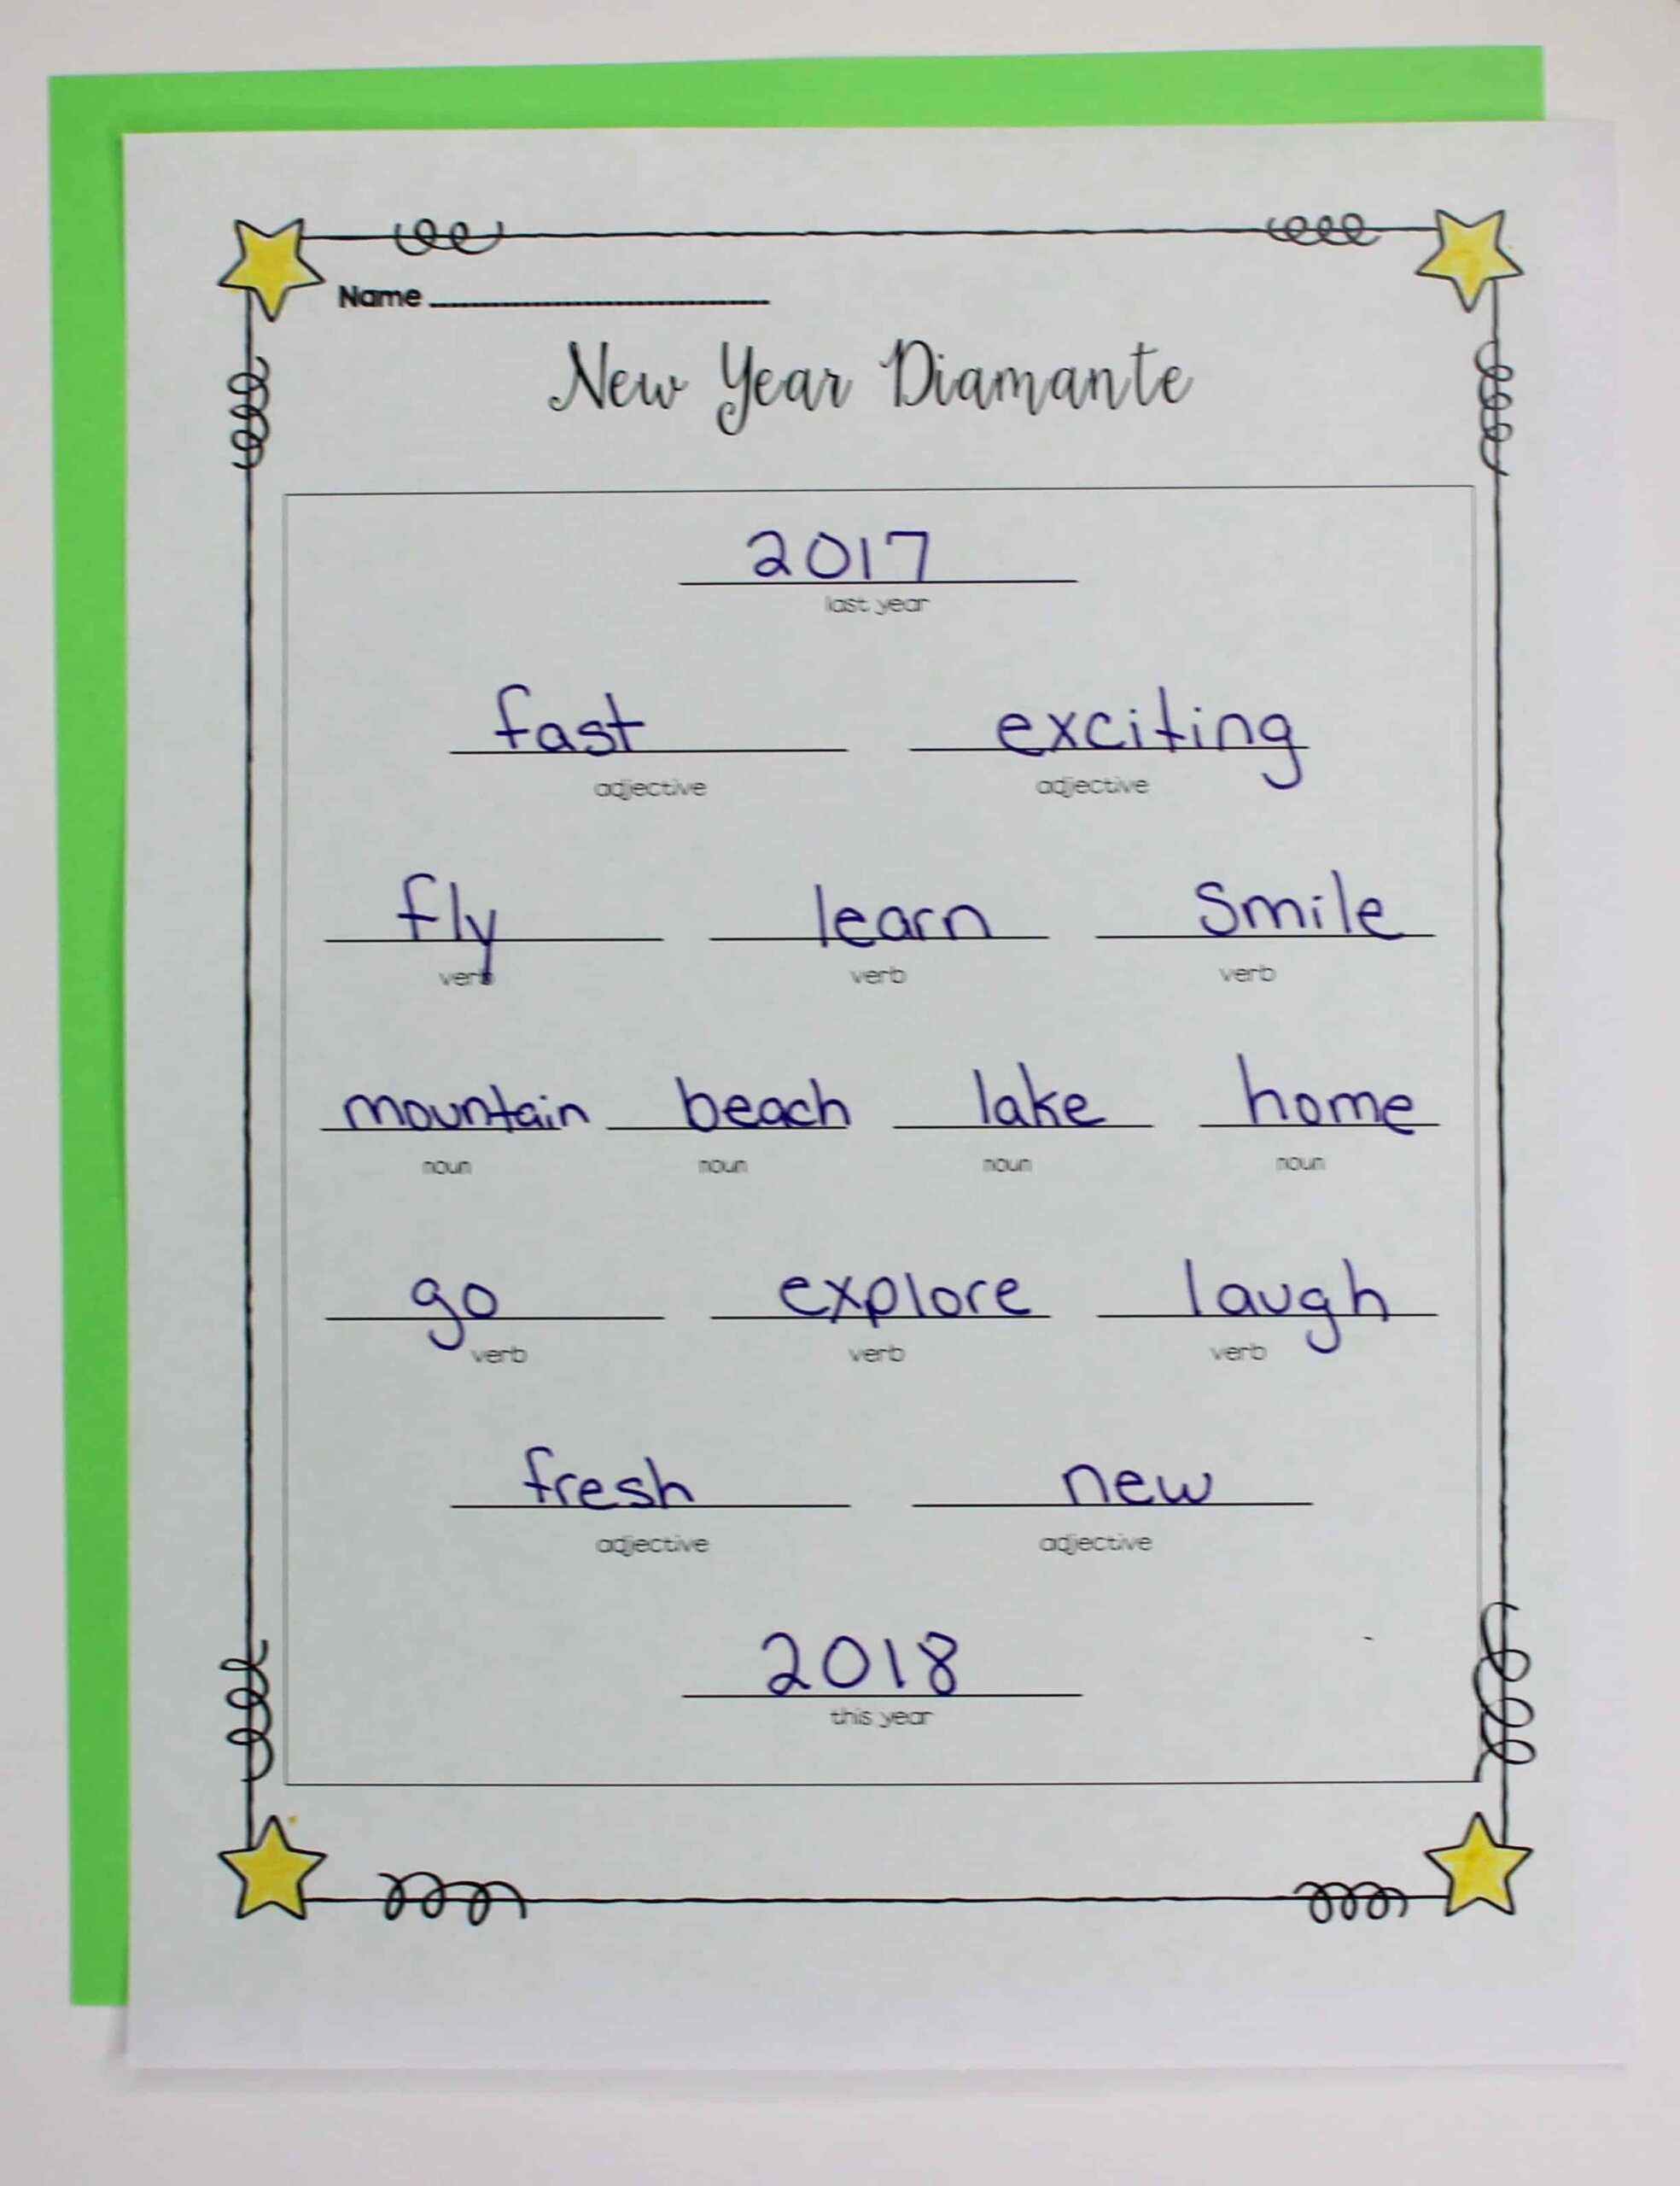 Name
New Year Diamante
2017
last year
fast exciting
adjective adjective
fly learn smile
verb verb verb
mountain beach lake home
noun noun noun noun
go explore laugh
verb verb verb
fresh new
adjective adjective
2018
this year